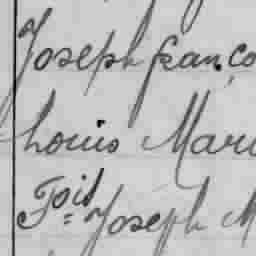 Joseph franco
Louis Mari
Fois Joseph M